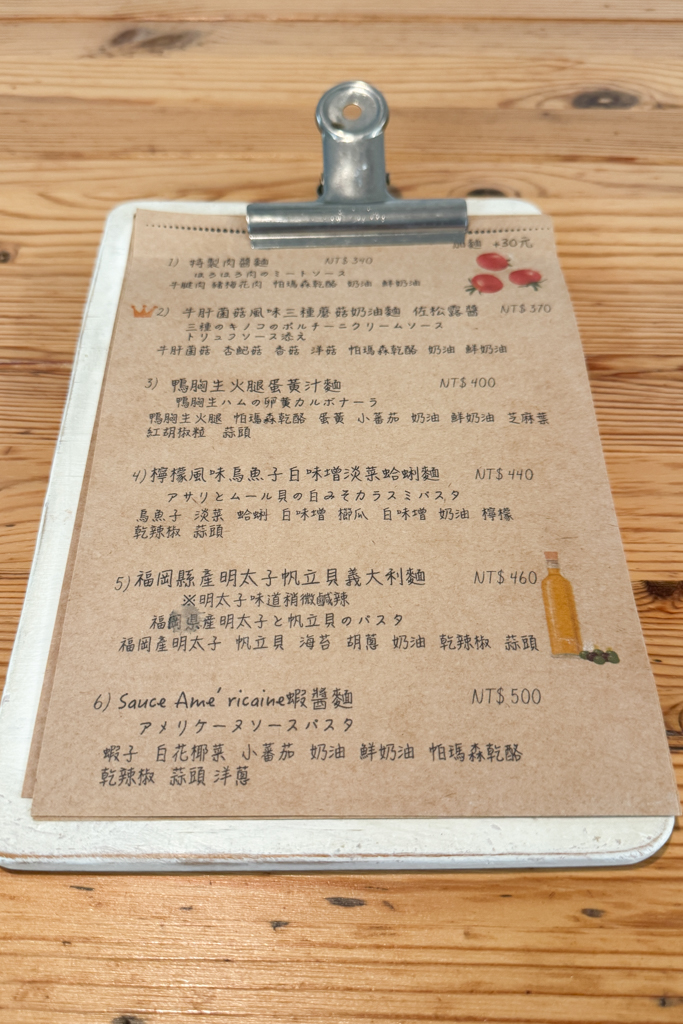 加麵 +30元
1) 特製肉醬麵 NT$340
ほろほろ肉のミートソース
牛腱肉 豬梅花肉 帕瑪森乾酪 奶油 鮮奶油
2) 牛肝菌菇風味三種蘑菇奶油麵 佐松露醬 NT$370
三種のキノコのポルチーニクリームソース
トリュフソース添え
牛肝菌菇 杏鮑菇 香菇 洋菇 帕瑪森乾酪 奶油 鮮奶油
3) 鴨胸生火腿蛋黃汁麵 NT$400
鴨胸生ハムの卵黄カルボナーラ
鴨胸生火腿 帕瑪森乾酪 蛋黃 小蕃茄 奶油 鮮奶油 芝麻葉
紅胡椒粒 蒜頭
4) 檸檬風味烏魚子白味增淡菜蛤蜊麵 NT$440
アサリとムール貝の白みそカラスミパスタ
烏魚子 淡菜 蛤蜊 白味增 櫛瓜 白味增 奶油 檸檬
乾辣椒 蒜頭
5) 福岡縣產明太子帆立貝義大利麵 NT$460
※明太子味道稍微鹹辣
福岡県産明太子と帆立貝のパスタ
福岡產明太子 帆立貝 海苔 胡蔥 奶油 乾辣椒 蒜頭
6) Sauce Ame´ricaine蝦醬麵 NT$500
アメリケーヌソースパスタ
蝦子 白花椰菜 小蕃茄 奶油 鮮奶油 帕瑪森乾酪
乾辣椒 蒜頭 洋蔥